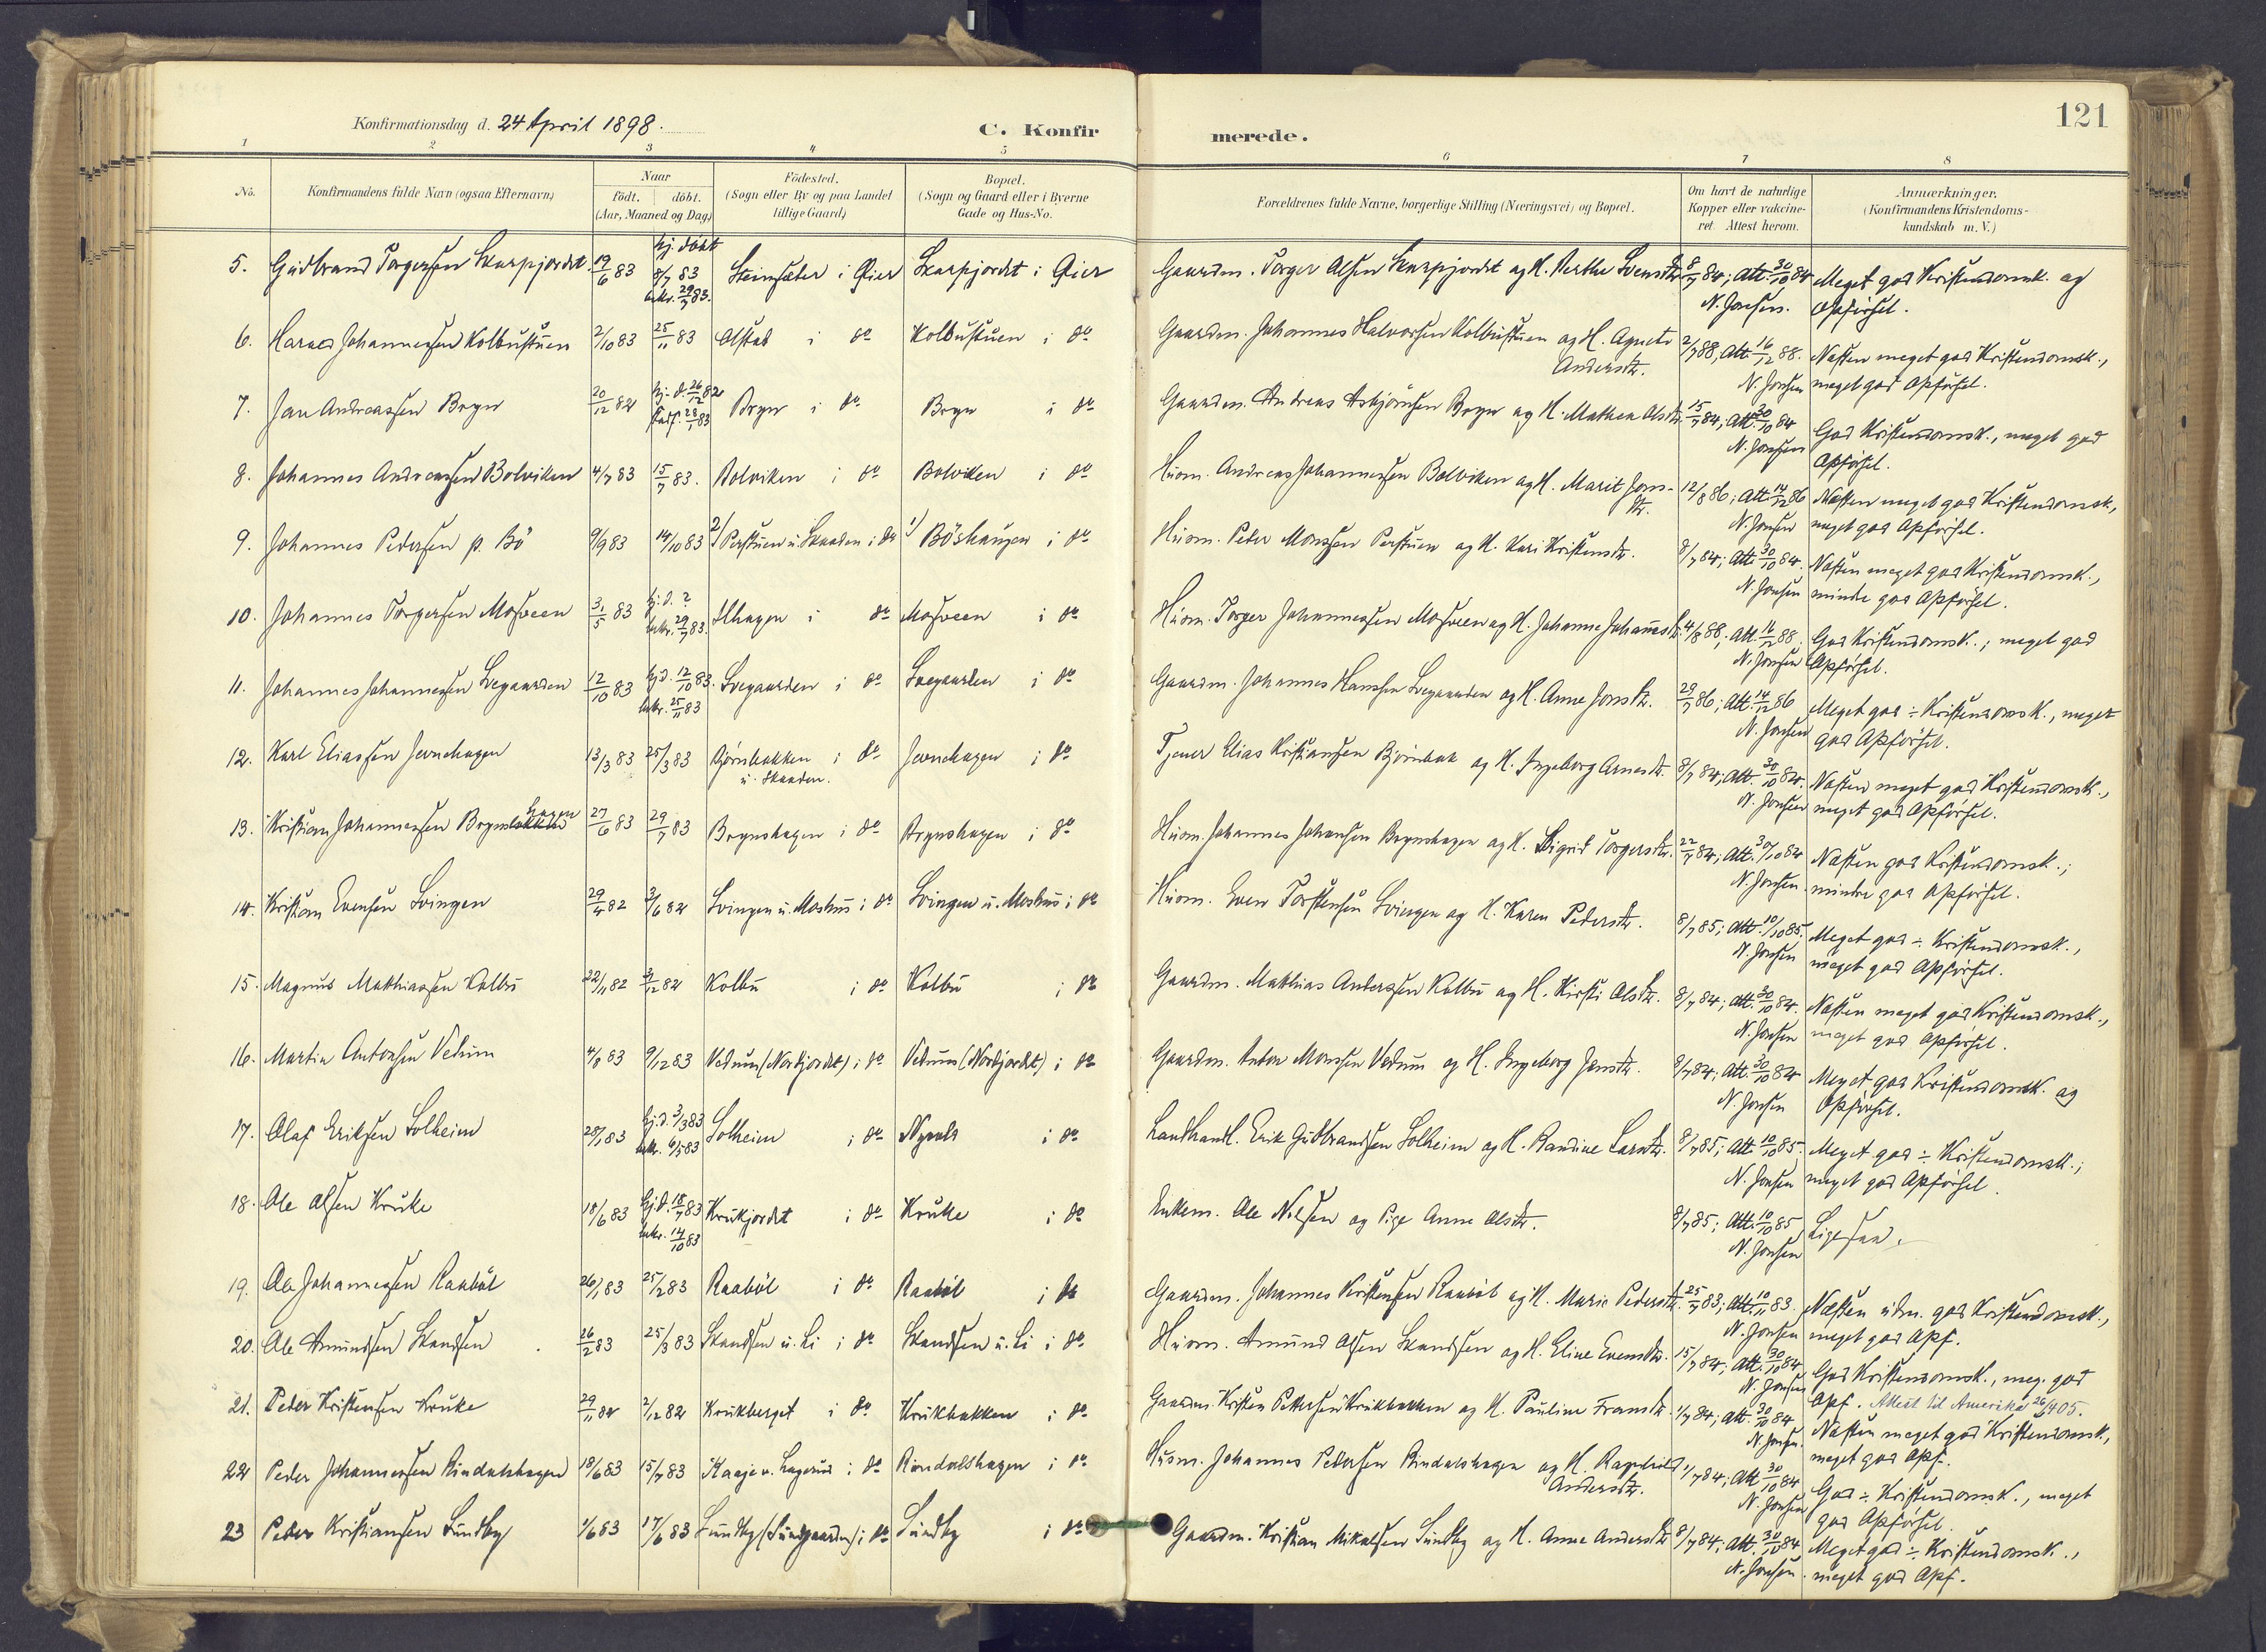 121
Konfirmationsdag d. 24 April 1898.
C. Konfir
merede.
1 2 3 4 5 6 7 8
No.
Konfirmandens fulde Navn (ogsaa Efternavn)
Naar
födt. döbt.
(Aar, Maaned og Dag)
Födested.
(Sogn eller By og paa Landet
tillige Gaard)
Bopæl.
(Sogn og Gaard eller i Byerne
Gade og Hus-No.
Forældrenes fulde Navne, borgerlige Stilling (Næringsvei) og Bopæl.
Om havt de naturlige
Kopper eller vakcine-
ret Attest herom.
Anmærkninger.
(Konfirmandens Kristendoms-
kundskab m. V.)
5. Gudbrand Torgersen Skarpjordet 19/6 83 hj. döbt 8/7 83 bekr. 29/7 83. Steinsæter i Øier Skarpjordet i Øier Gaardm. Torger Olsen Skarpjordet og H. Berthe Svensdtr. 8/7 84; Att. 30/10 84 Meget god Kristendomsk. og
N. Jonsen. Opförsel.
6. Johannessen Kolbustuen 2/10 83 25/11 83 Olstad i do Kolbustuen i do Gaardm. Johannes Halvorsen Kolbustuen og H. Agnete 2/7 88, Att. 16/12 88. Næsten meget god Kristendomsk.,
Andersdtr. N. Jonsen meget god Opförsel.
7. Jan Andreassen Bryn 20/12 82 hj. d. 26/12 82 28/1 83 Bryn i do Bryn i do Gaardm. Andreas Asbjörnsen Bryn og H. Mathea Olsdtr. 15/7 84, Att. 30/10 84 God Kristendomsk., meget god
N. Jonsen Opförsel.
8. Johannes Andreassen Bolviken 4/7 83 15/7 83. Bolviken i do Bolviken i do Husm. Andreas Johannessen Bolviken og H. Marit Jons- 12/8 86; Att. 14/12 86 Næsten meget god Kristendomsk.,
dtr. N. Jonsen meget god Opförsel.
9. Johannes Pedersen p. Bö 9/9 83 14/10 83 2/ Perstuen u. Skaaden i do 1/ Böshaugen i do Husm. Peder Monsen Perstuen og H. Kari Kristensdtr. 8/7 84; Att. 30/10 84. Næsten meget god Kristendomsk.,
N. Jonsen mindre god Opförsel.
10. Johannes Torgersen Mosveen 31/5 83 hj. d. ? bekr. 29/7 83. Ilhagen i do Mosveen i do Husm. Torger Johannessen Mosveen og H. Johanne Johansdtr. 4/8 88; Att. 16/12 88. God Kristendomsk.; meget god
N. Jonsen Opförsel.
11. Johannes Johannessen Svegaarden 12/10 83 hj. d. 12/10 83. bekr. 25/11 83 Svegaarden i do Svegaarden i do Gaardm. Johannes Hansen Svegaarden og H. Anne Jonsdtr. 29/7 86; Att. 14/12 86 Meget god ÷ Kristendomsk., meget
N. Jonsen god Opförsel.
12. Karl Eliassen Jevnehagen 13/3 83 25/3 83 Bjørnbakken i do Jevnehagen i do Tjener Elias Kristiansen Björnbak og H. Ingeborg Arnesdtr. 8/7 84; Att. 30/10 84. Næsten meget god Kristendomsk.,
u. Skaaden. N. Jonsen meget god Opförsel.
13. Kristian Johannessen Brynsbakken hagen 27/6 83 29/7 83 Brynshagen i do Brynshagen i do Husm. Johannes Johansen Brynshagen og H. Sigrid Torgersdtr. 22/7 84; Att. 30/10 84 Næsten god Kristendomsk.;
N. Jonsen. mindre god Opförsel.
14. Kristian Evensen Svingen 29/4 82 3/6 82 Svingen u. Moshus i do Svingen u. Moshus i do Husm. Even Torstensen Svingen og H. Karen Pedersdtr. 8/7 85; Att. 10/10 85. Meget god ÷ Kristendomsk.,
N. Jonsen meget god Opförsel.
15. Magnus Mathiassen Kolbu 22/11 82 3/12 82 Kolbu i do Kolbu i do Gaardm. Mathias Anderssen Kolbu og H. Kirsti Olsdtr. 8/7 84; Att. 30/10 84. Næsten meget god Kristendomsk.,
N. Jonsen meget god Opförsel.
16. Martin Antonsen Vedum 4/8 83 9/12 83 Vedum (Nordjordet) i do Vedum (Nordjordet) i do Gaardm. Anton Monsen Vedum og H. Ingeborg Jensdtr. 8/7 84; Att. 30/10 84 Meget god Kristendomsk. og
N. Jonsen Opförsel.
17. Olaf Eriksen Solheim 28/1 83 hj. d. 3/3 83 bekr. 6/5 83 Solheim i do i do Landhandl. Erik Gudbrandsen Solheim og H. Randine Larsdtr. 8/7 85; Att. 10/10 85. Meget god ÷ Kristendomsk.;
N. Jonsen meget god Opförsel.
18. Ole Olsen Kruke 18/6 83 hj. d. 18/7 83 bekr. 14/10 83 Krukjordet i do Kruke i do Enkem. Ole Nilsen og Pige Anne Olsdtr. 8/7 85; Att. 10/10 85 Ligesaa.
N. Jonsen
19. Ole Johannessen Raaböl 26/1 83 25/2 83 Raaböl i do Raaböl i do Gaardm. Johannes Kristensen Raaböl og H. Marie Pedersdtr. 25/7 83; Att. 10/11 83. Næsten udm. god Kristendomsk.,
N. Jonsen meget god Opf.
20. Ole Amundsen Skandsen 26/2 83 25/3 83 Skandsen u. Li i do Skandsen u. Li i do Husm. Amund Olsen Skandsen og H. Eline Evensdtr. 15/7 84; Att. 30/10 84 God Kristendomsk., meg. god
N. Jonsen Opf. Attest til Amerika 26/4 05.
21. Peder Kristensen Kruke 29/11 82 2/12 82 Krukberget i do Krukbakken i do Gaardm. Kristen Pedersen Krukbakken og H. Pauline Fransdtr. 1/7 84; Att. 30/10 84 Næsten meget god Kristendomsk,
N. Jonsen. meget god Opf.
22 Peder Johannessen Rindalshagen 18/6 83 15/7 83 i do Rindalshagen i do Husm. Johannes Pedersen Rindalshagen og H. Ragnhild 1/7 84; Att. 30/10 84 God ÷ Kristendomsk., meget
Andersdtr. N. Jonsen god Opförsel.
23 Peder Kristiansen Sundby 1/6 83 17/6 83 Sundby (Sundgaarden) i do Sundby i do Gaardm. Kristian Mikalsen Sundby og H. Anne Andersdtr 8/7 84; Att. 30/10 84 Meget god ÷ Kristendomsk.,
N. Jonsen. meget god Opf.